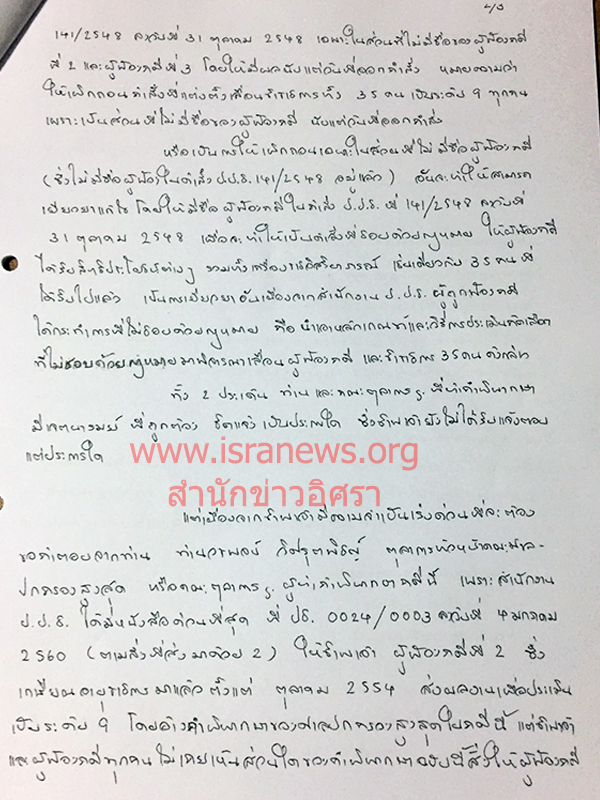 4/5
141/2548 ลงวันที่ 31 ตุลาคม 2548 เฉพาะในส่วนที่ไม่มีชื่อของผู้ฟ้องคดี
ที่ 2 และผู้ฟ้องคดีที่ 3 โดยให้มีผลนับแต่วันที่ออกคำสั่ง หมายความว่า
ให้เพิกถอนคำสั่งที่แต่งตั้งเลื่อนข้าราชการทั้ง 35 คน เป็นระดับ 9 ทุกคน
เพราะเป็นส่วนที่ไม่มีชื่อของผู้ฟ้องคดี นับแต่วันที่ออกคำสั่ง
หรือเป็นการให้เพิกถอนเฉพาะในส่วนที่ไม่มีชื่อผู้ฟ้องคดี
(ซึ่งไม่มีชื่อผู้ฟ้องในคำสั่ง ป.ป.ร. 141/2548 อยู่แล้ว) อันจะทำให้สามารถ
เยียวยาแก้ไข โดยให้มีชื่อผู้ฟ้องคดีในคำสั่ง ป.ป.ร. ที่ 141/2548 ลงวันที่
31 ตุลาคม 2548 เพื่อจะทำให้เป็นคำสั่งที่ชอบด้วยกฎหมาย ให้ผู้ฟ้องคดี
ได้รับสิทธิประโยชน์ต่างๆ รวมทั้งเครื่องราชอิสริยาภรณ์ เช่นเดียวกับ 35 คน ที่
ได้รับไปแล้ว เป็นการเยียวยาอันเนื่องจากสำนักงาน ป.ป.ร. ผู้ถูกฟ้องคดี
ได้กระทำการที่ไม่ชอบด้วยกฎหมาย คือ นำเอาหลักเกณฑ์และวิธีการประเมินคัดเลือก
ที่ไม่ชอบด้วยกฎหมายมาพิจารณาเลื่อนผู้ฟ้องคดี และข้าราชการ 35 คน ดังกล่าว
ทั้ง 2 ประเด็น ท่านและคณะตุลาการฯ ที่ทำคำพิพากษา
มีเจตนารมณ์ ที่ถูกต้อง ชัดแจ้ง เป็นประการใด ซึ่งข้าพเจ้ายังไม่ได้รับแจ้งตอบ
แต่ประการใด
www.isranews.org
สำนักข่าวอิศรา
แต่เนื่องจากข้าพเจ้ามีความจำเป็นเร่งด่วนที่จะต้อง
ขอคำตอบจากท่าน ท่านวรพจน์ วิศรุตพิชญ์ ตุลาการหัวหน้าคณะศาล
ปกครองสูงสุด หรือคณะตุลาการฯ ผู้ทำคำพิพากษาคดีนี้ เพราะสำนักงาน
ป.ป.ร. ได้มีหนังสือด่วนที่สุด ที่ ปร. 0024/0003 ลงวันที่ 4 มกราคม
2560 (ตามสิ่งที่ส่งมาด้วย 2) ให้ข้าพเจ้า ผู้ฟ้องคดีที่ 2 ซึ่ง
เกษียณอายุราชการมาแล้วตั้งแต่ ตุลาคม 2554 ส่งผลงานเพื่อประเมิน
เป็นระดับ 9 โดยอ้างคำพิพากษาของศาลปกครองสูงสุดในคดีนี้ แต่ข้าพเจ้า
และผู้ฟ้องคดีทุกคน ไม่เคยเห็นส่วนใดของคำพิพากษาฉบับนี้สั่งให้ผู้ฟ้องคดี